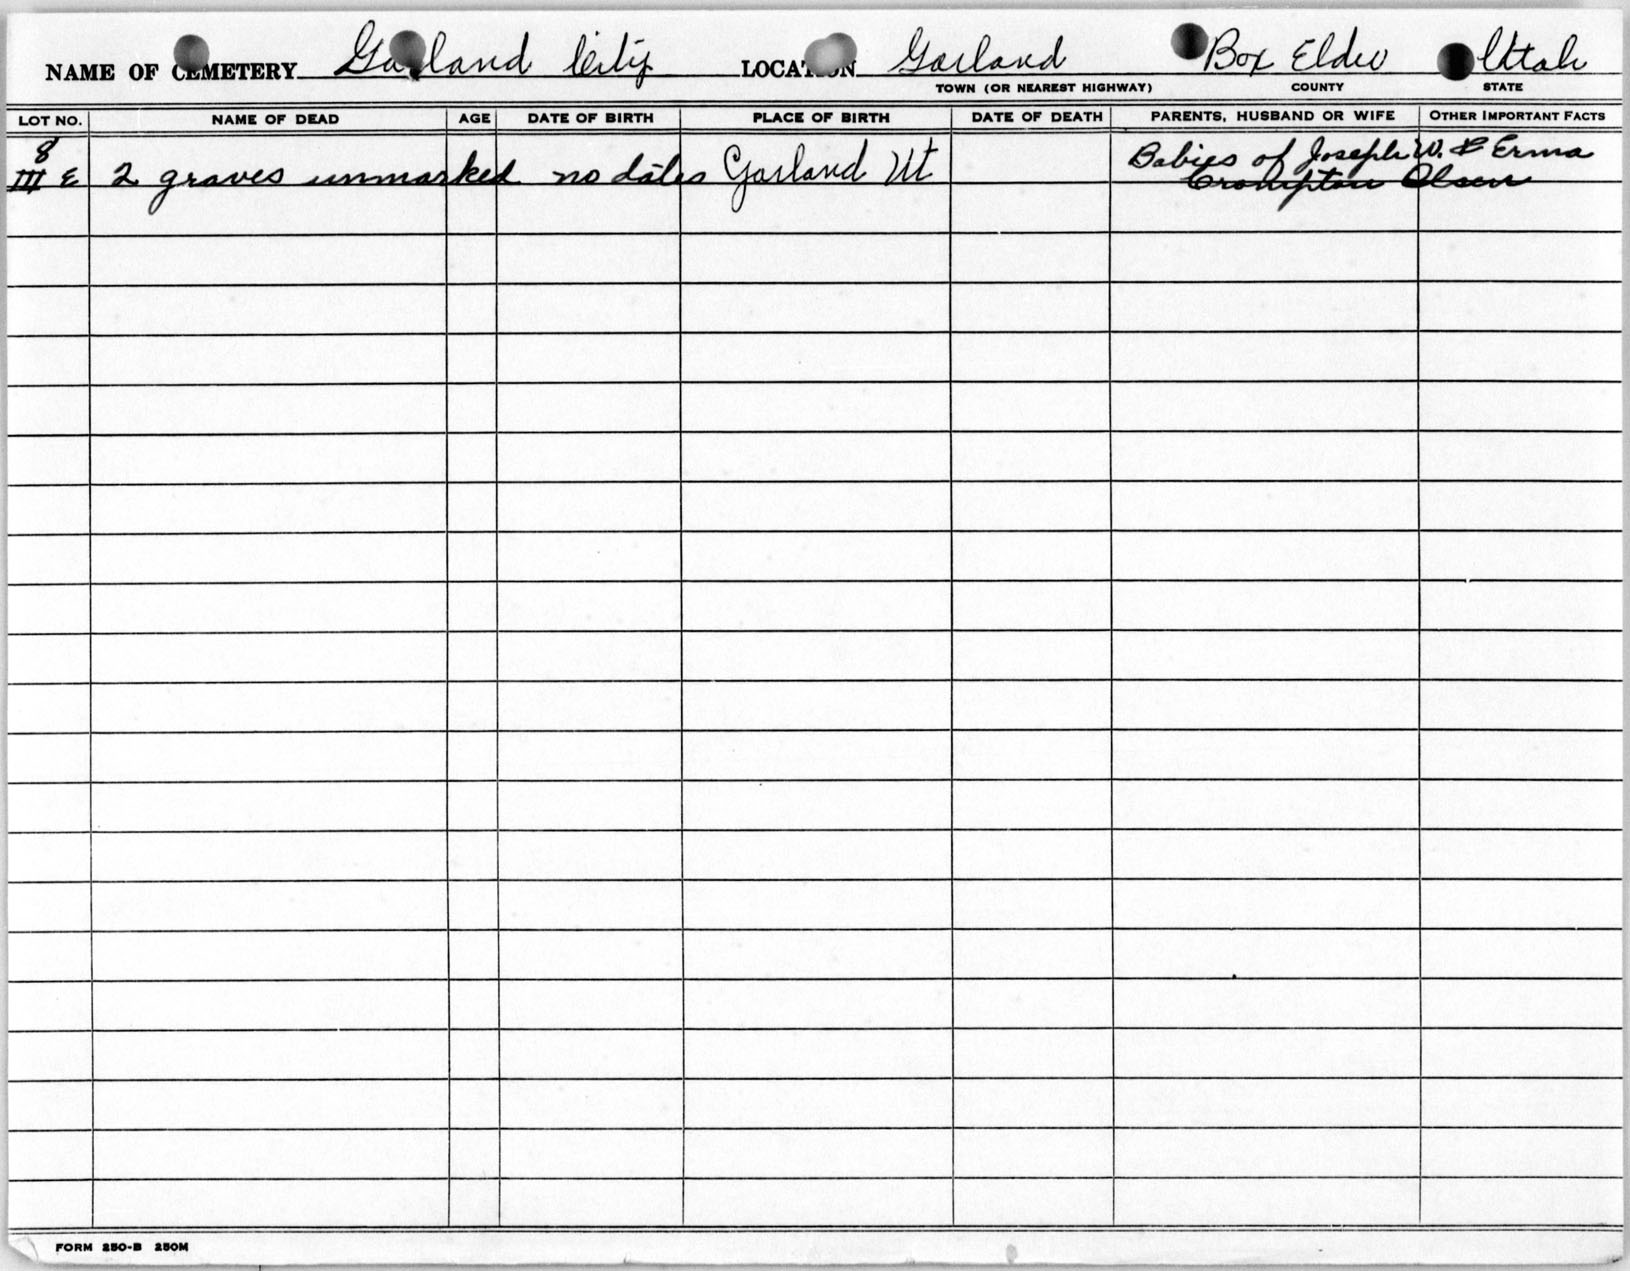 NAME OF CEMETERY Garland City LOCATION Garland Box Elder Utah
TOWN (OR NEAREST HIGHWAY) COUNTY STATE
LOT NO. NAME OF DEAD AGE DATE OF BIRTH PLACE OF BIRTH DATE OF DEATH PARENTS, HUSBAND OR WIFE OTHER IMPORTANT FACTS
8 Babies of Joseph W. & Erma
III E 2 graves unmarked no dates Garland Ut Crompton Olsen
FORM 250-B 250M